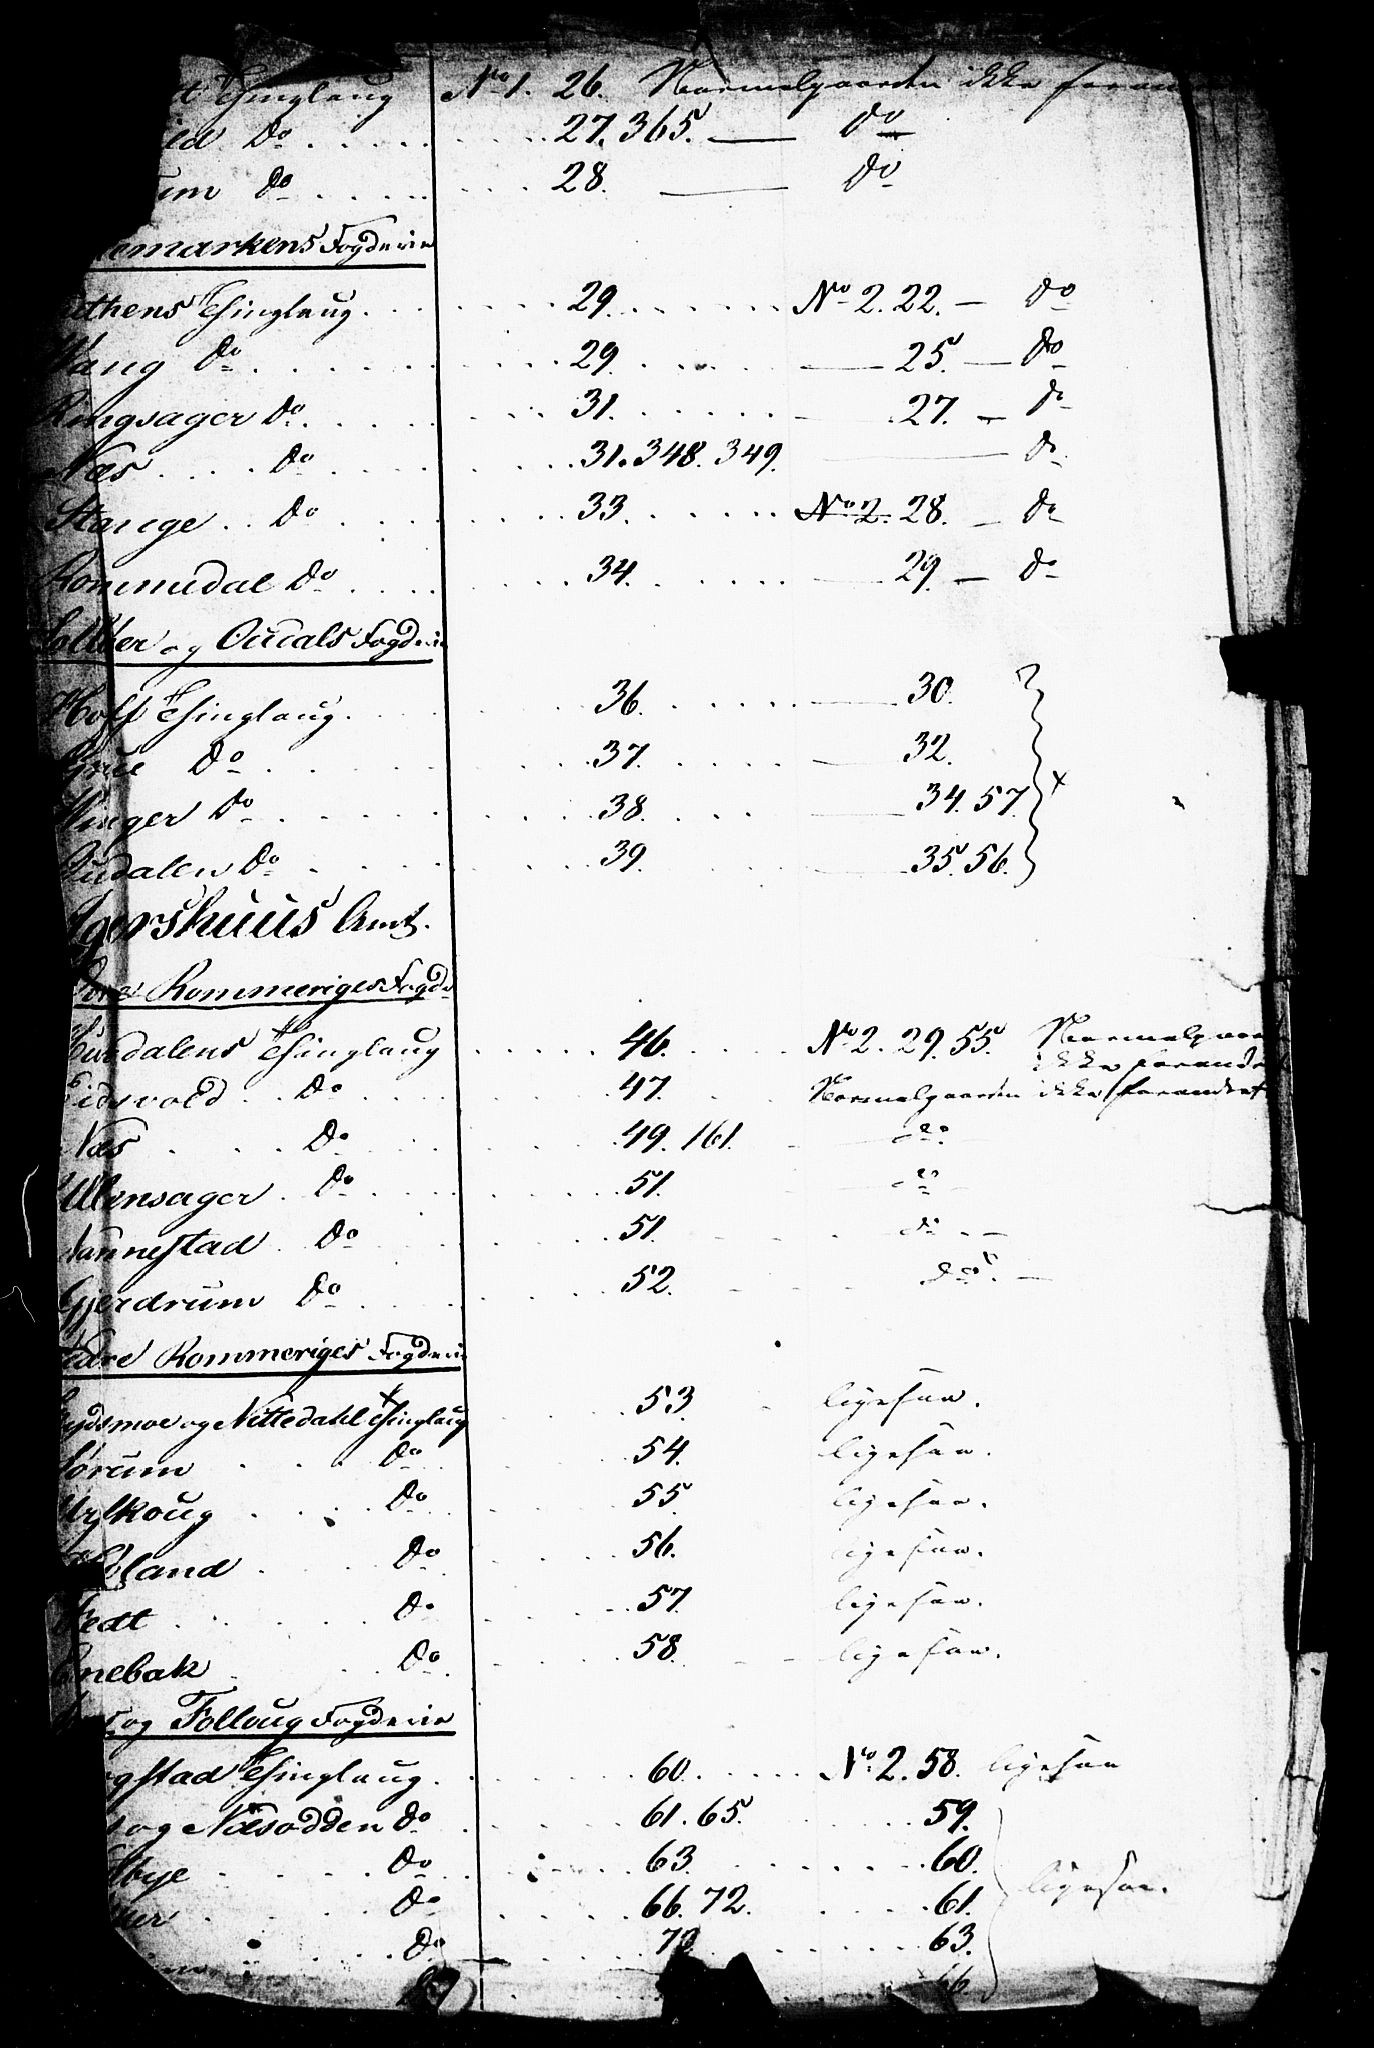 Thinglaug No 1. 26. Normalgaarden ikke
Do 27. 365. — Do
Do 28. — Do
markens Fogderie
Thinglaug 29. No 2. 22. — Do
Vang Do 29. — 25. — Do
Ringsager Do 31. — 27. — Do
Næs Do 31. 348. 349. — Do
Stange Do 33. No 2. 28. — Do
Rommedal Do 34. — 29. — Do
og Oudals Fogderie
Hoff Thinglaug 36. — 30.
Grue Do 37. — 32.
Winger Do 38. — 34. 57. ×
Oudalen Do 39. — 35. 56.
Agershuus Amt.
Øvre Rommeriges Fogde
Hurdalens Thinglaug 46. No 2. 29. 55. Normalgaar
ikke forandr
Eidsvold Do 47. Normalgaarden ikke forandret
Næs Do 49. 161. — do —
Ullensager Do 51. do —
Nannestad Do 51. — do —
Gjerdrum Do 52. do —
Nedre Rommeriges Fogderie
og Nittedahl Thinglaug 53 ligesaa.
Sørum Do 54. ligesaa.
Urskoug Do 55 ligesaa.
Høland Do 56. ligesaa.
Fedt Do 57 ligesaa.
Enebak Do 58. ligesaa.
og Folloug Fogderie
Thinglaug 60. No 2. 58. ligesaa
og Næsodden Do 61. 65. 59.
Do 63. 60. ligesaa.
Do 66. 72. 61.
Do 63.
66.